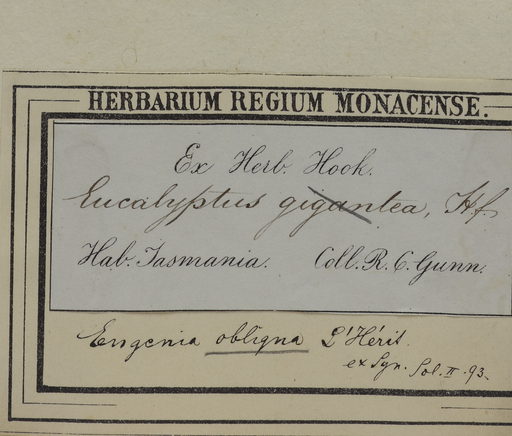 HERBARIUM REGIUM MONACENSE.
Ex Herb. Hook.
Eucalyptus gigantea, H.f.
Hab. Tasmania. Coll. R. C. Gunn.
Eugenia obliqna L'Hérit.
ex Syn. Sol. II. 93.